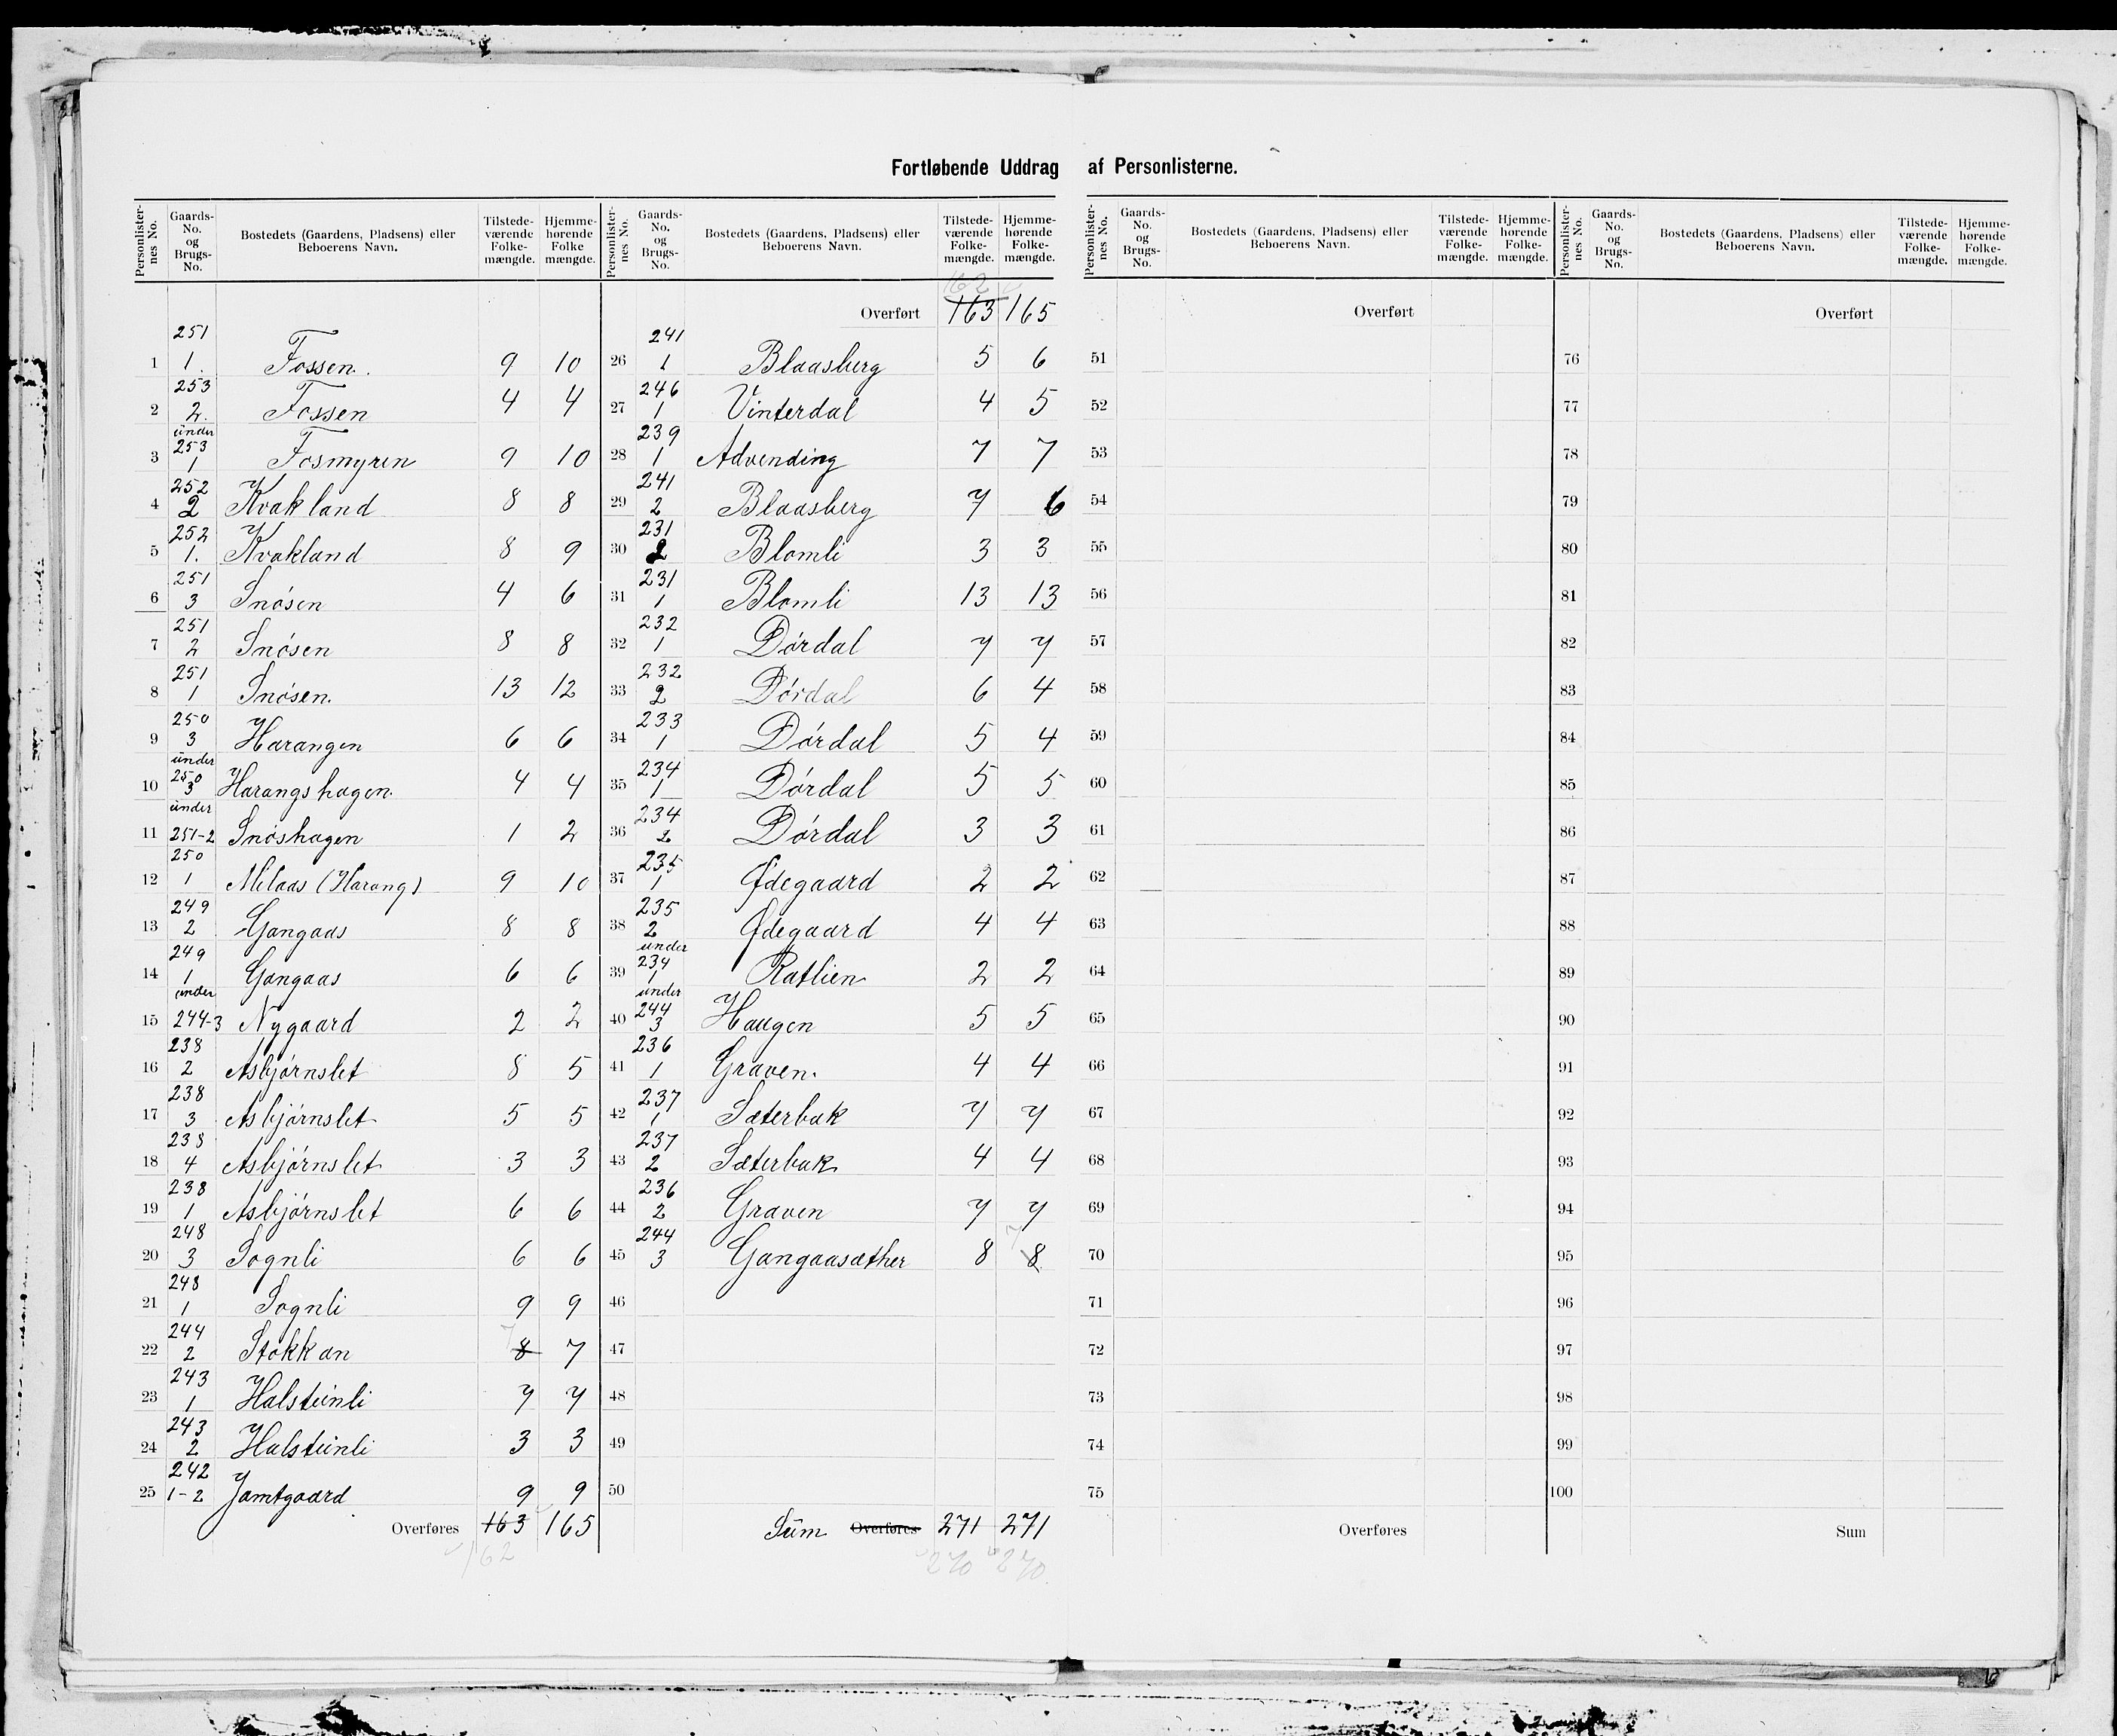 Fortløbende Uddrag af Personlisterne.
Personlisternes No. Gaards-No. og Brugs-No. Bostedets (Gaardens, Pladsens) eller Beboerens Navn. Tilstedeværende Folkemængde. Hjemmehørende Folkemængde.
251
1 1. Fossen. 9 10
253
2 2. Fossen 4 4
under
253
3 1 Fosmyren 9 10
252
4 2 Kvakland 8 8
252
5 1. Kvakland 8 9
251
6 3 Snøsen 4 6
251
7 2 Snøsen 8 8
251
8 1 Snøsen. 13 12
250
9 3 Harangen 6 6
under
250
10 3 Harangshagen. 4 4
under
11 251-2 Snøshagen 1 2
250
12 1 Melaas (Harang) 9 10
249
13 2 Gangaas 8 8
249
14 1 Gangaas 6 6
under
15 244-3 Nygaard 2 2
238
16 2 Asbjørnslet 8 5
238
17 3 Asbjørnslet 5 5
238
18 4 Asbjørnslet 3 3
238
19 1 Asbjørnslet 6 6
248
20 3 Sognli 6 6
248
21 1 Sognli 9 9
244 7
22 2 Stokkan 8 7
243
23 1 Halsteinli 7 7
243
24 2 Halsteinli 3 3
242
25 1-2 Jamtgaard 9 9
Overføres 163 165
162
Personlisternes No. Gaards-No. og Brugs-No. Bostedets (Gaardens, Pladsens) eller Beboerens Navn. Tilstedeværende Folkemængde. Hjemmehørende Folkemængde.
162
Overført 163 165
241
26 1 Blaasberg 5 6
246
27 1 Vinterdal 4 5
239
28 1 Advending 7 7
241
29 2 Blaasberg 7 6
231
30 2 Blomli 3 3
231
31 1 Blomli 13 13
232
32 1 Dørdal 7 7
232
33 2 Dørdal 6 4
233
34 1 Dørdal 5 4
234
35 1 Dørdal 5 5
234
36 2 Dørdal 3 3
235
37 1 Ødegaard 2 2
235
38 2 Ødegaard 4 4
under
234
39 1 Ratlien 2 2
under
244
40 3 Haugen 5 5
236
41 1 Graven. 4 4
237
42 1 Sæterbak 7 7
237
43 2 Sæterbak 4 4
236
44 2 Graven 7 7
244 7
45 3 Gangaasæther 8 8
46
47
48
49
50
Sum Overføres 271 271
270 270.
Personlisternes No. Gaards-No. og Brugs-No. Bostedets (Gaardens, Pladsens) eller Beboerens Navn. Tilstedeværende Folkemængde. Hjemmehørende Folkemængde.
Overført
51
52
53
54
55
56
57
58
59
60
61
62
63
64
65
66
67
68
69
70
71
72
73
74
75
Overføres
Personlisternes No. Gaards-No. og Brugs-No. Bostedets (Gaardens, Pladsens) eller Beboerens Navn. Tilstedeværende Folkemængde. Hjemmehørende Folkemængde.
Overført
76
77
78
79
80
81
82
83
84
85
86
87
88
89
90
91
92
93
94
95
96
97
98
99
100
Sum